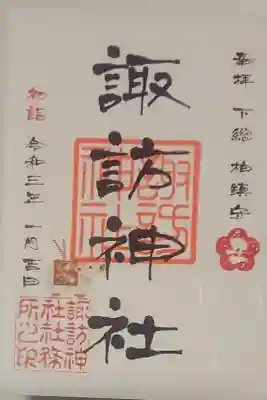 奉拝 下総 柏鎮守
諏訪神社
諏訪神社
初詣 令和三年 一月吉日
諏訪神社社務所之印